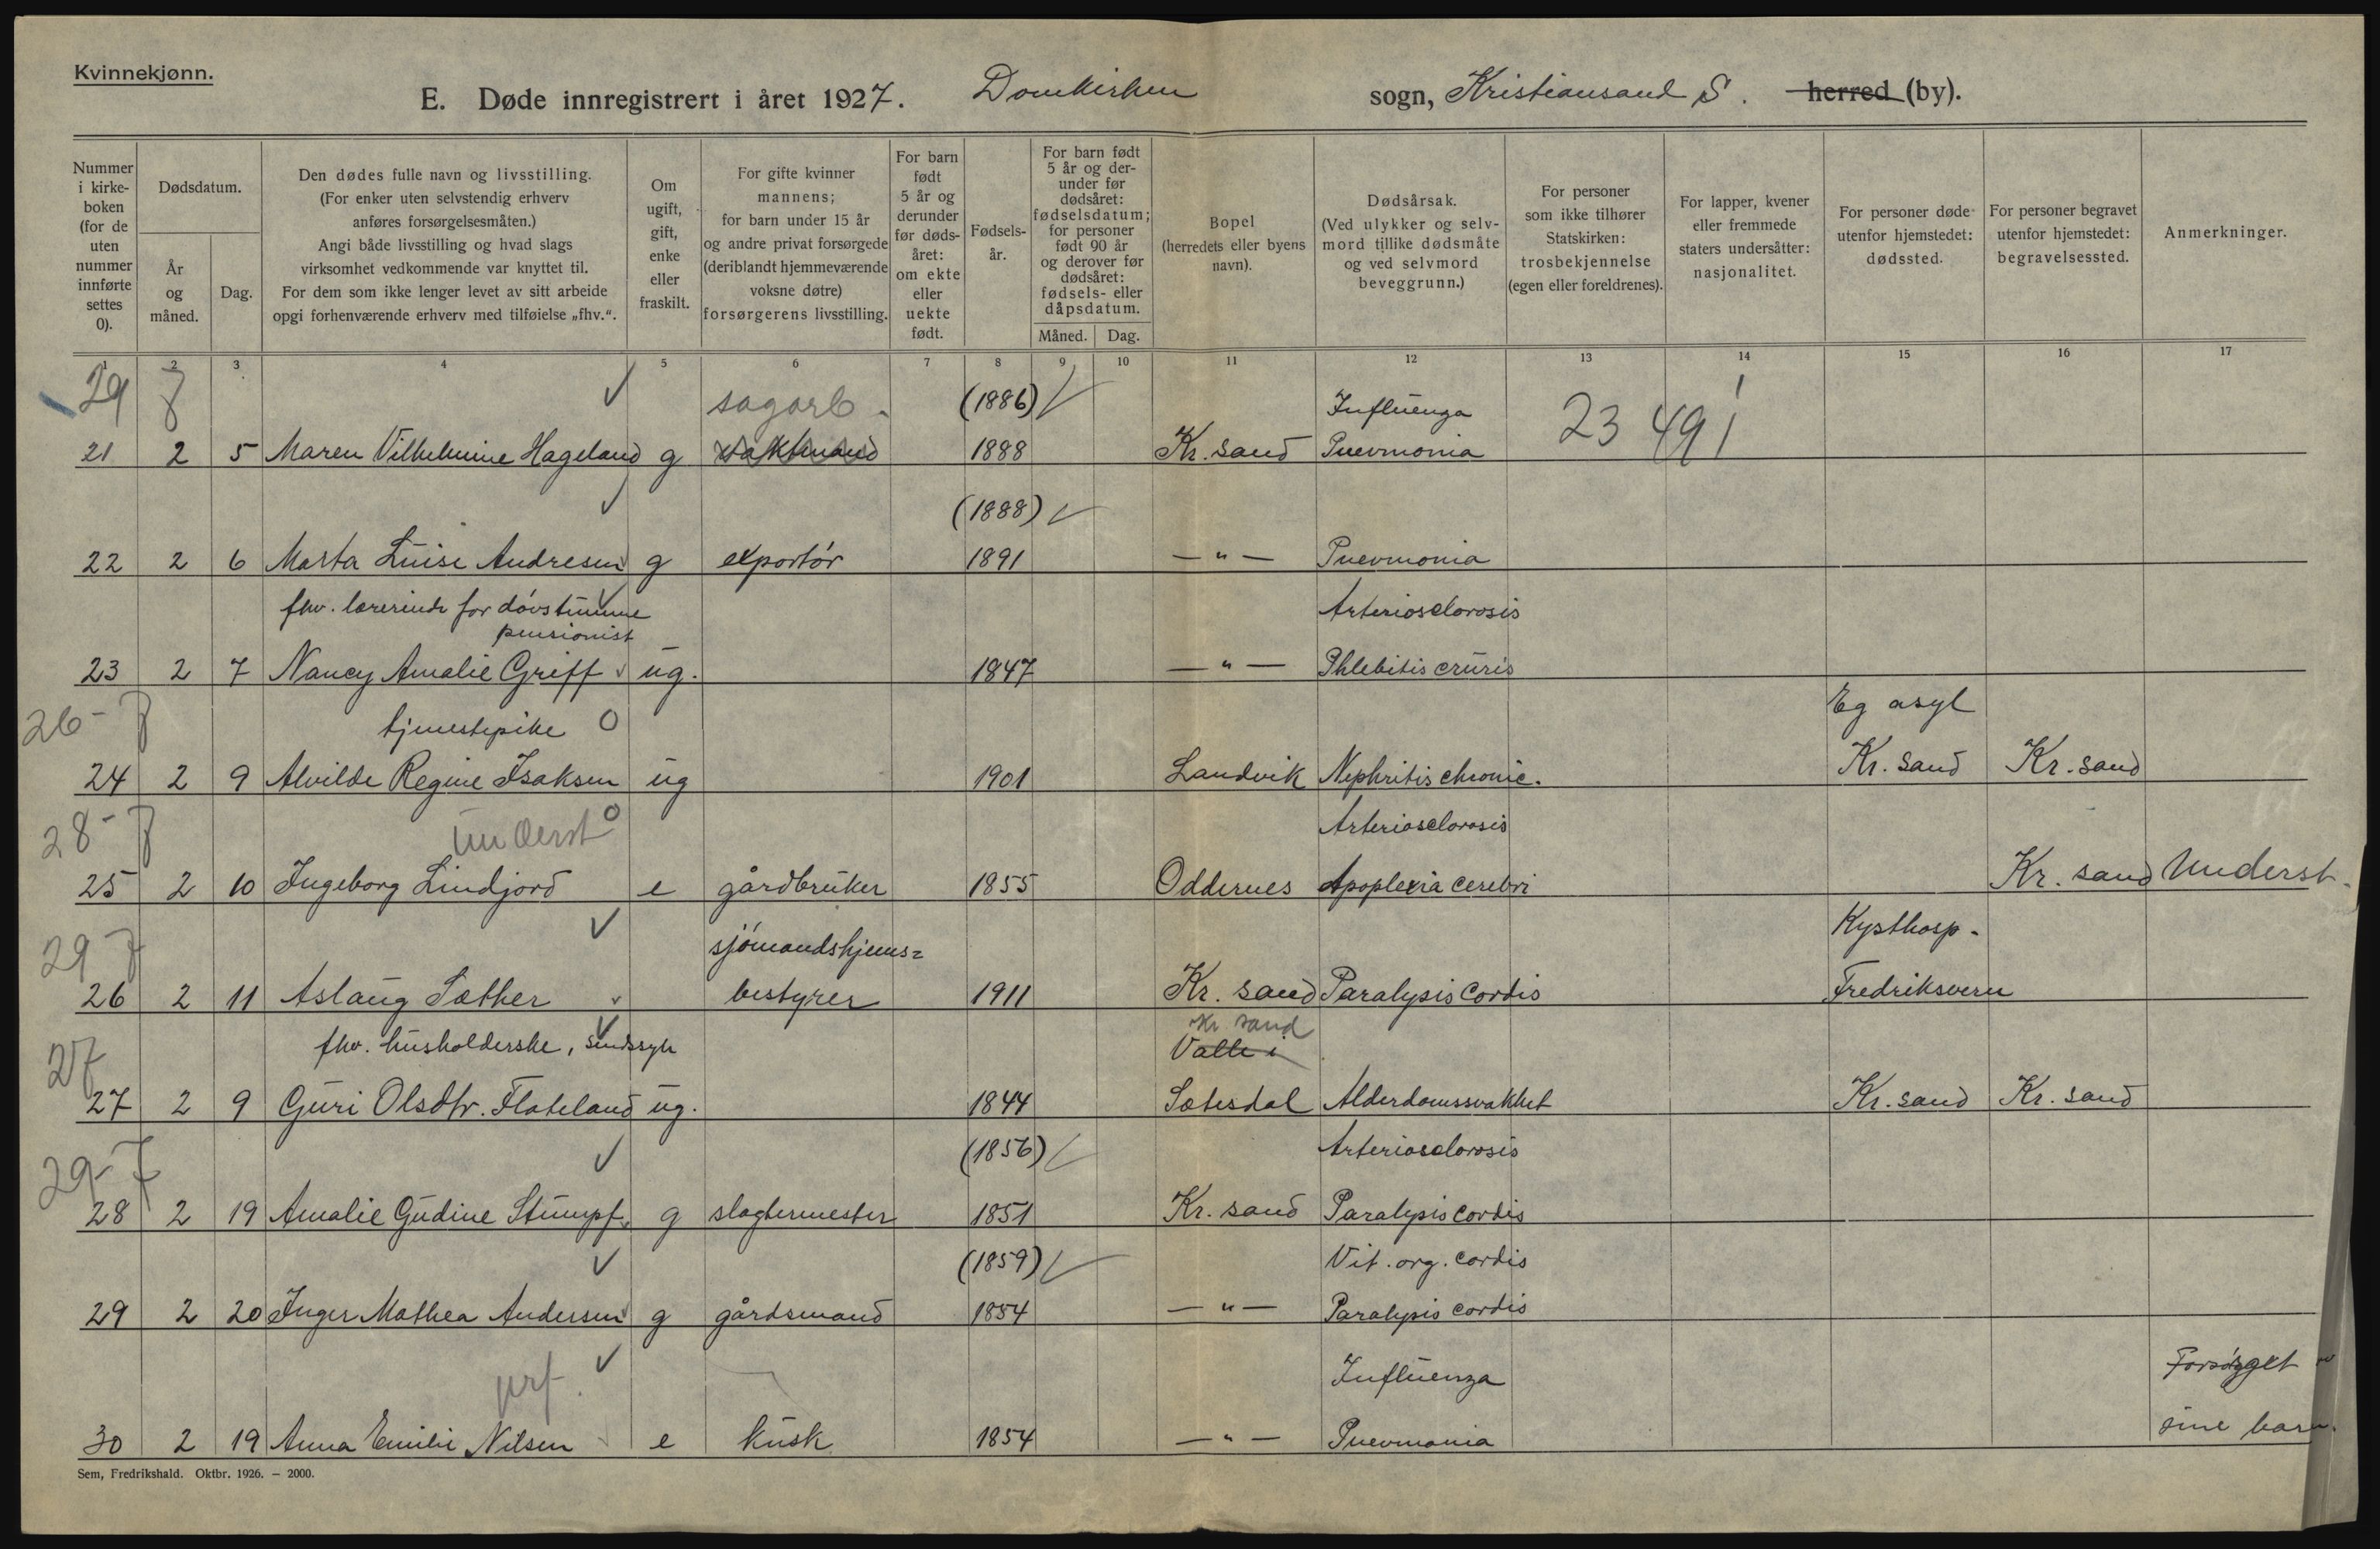 Kvinnekjønn.
E. Døde innregistrert i året 1927. Domkirken sogn, Kristiansand S. herred (by).
Nummer i kirke-boken (for de uten nummer innførte settes 0).
Dødsdatum.
År og måned.
Dag.
Den dødes fulle navn og livsstilling.
(For enker uten selvstendig erhverv
anføres forsørgelsesmåten.)
Angi både livsstilling og hvad slags
virksomhet vedkommende var knyttet til.
For dem som ikke lenger levet av sitt arbeide
opgi forhenværende erhverv med tilføielse „fhv.“.
Om ugift, gift, enke eller fraskilt.
For gifte kvinner
mannens;
for barn under 15 år
og andre privat forsørgede
(deriblandt hjemmeværende
voksne døtre)
forsørgerens livsstilling.
For barn født 5 år og derunder før døds-året: om ekte eller uekte født.
Fødsels-år.
For barn født 5 år og der-under før dødsåret: fødselsdatum; for personer født 90 år og derover før dødsåret: fødsels- eller dåpsdatum.
Måned. Dag.
Bopel
(herredets eller byens
navn).
Dødsårsak.
(Ved ulykker og selv-
mord tillike dødsmåte
og ved selvmord
beveggrunn.)
For personer
som ikke tilhører
Statskirken:
trosbekjennelse
(egen eller foreldrenes).
For lapper, kvener
eller fremmede
staters undersåtter:
nasjonalitet.
For personer døde
utenfor hjemstedet:
dødssted.
For personer begravet
utenfor hjemstedet:
begravelsessted.
Anmerkninger.
1 2 3 4 5 6 7 8 9 10 11 12 13 14 15 16 17
29 7 sagarb. (1886) Influenza 23 491
21 2 5 Maren Vilhelmine Hageland g vaktmand 1888 Kr. sand Pnevmonia
(1888)
22 2 6 Marta Luise Andresen g exportör 1891 — " — Pnevmonia
fhv. lærerinde for døvstumme Arteriosclorosis
pensionist
23 2 7 Nancy Amalie Greff ug. 1847 — " — Phlebitis cruris
26 - 7 tjenestepike O Eg asyl
24 2 9 Alvilde Regine Isaksen ug 1901 Landvik Nephritis chronic. Kr. sand Kr. sand
28 - 7 underst O Arteriosclorosis
25 2 10 Ingeborg Lindjord e gårdbruker 1855 Oddernes Apoplexia cerebri Kr. sand Underst.
29 7 sjömandshjems= Kysthosp.
26 2 11 Aslaug Sæther bestyrer 1911 Kr. sand Paralysis Cordis Fredriksvern
Kr sand
27 fhv. husholderske, sindssyk Valle i
27 2 9 Guri Olsdtr. Flateland ug. 1844 Sætesdal Alderdomssvakhet Kr. sand Kr. sand
29 - 7 (1856) Arteriosclorosis
28 2 19 Amalie Gudine Stumpf g slagtermester 1851 Kr. sand Paralysis Cordis
(1859) Vit. org. cordis
29 2 20 Inger Mathea Andersen g gårdsmand 1854 — " — Paralysis cordis
prf. Influenza Forsörget
30 2 19 Anna Emilie Nilsen e kusk 1854 — " — Pnevmonia sine barn.
Sem, Fredrikshald. Oktbr. 1926. — 2000.